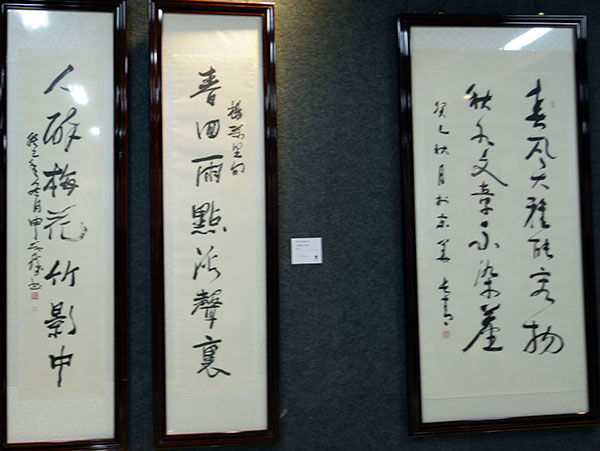 春风大雅能容物
秋水文章不染塵
癸巳秋月於京華
春回雨點谿聲裏
人醉梅花竹影中
癸巳年冬月申